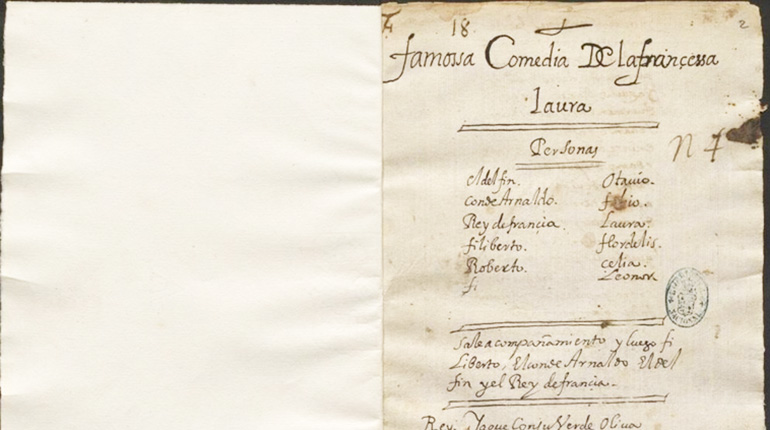 18
2
famossa Comedia De la françessa
Laura
Personas
N 4
el delfin. Otavio.
conde Arnaldo. fabio.
Rey de françia. Laura.
filiberto. flordelis.
Roberto. celia.
f Leonor
sale acompañamiento y luego fi
Liberto, El conde Arnaldo El del
fin y el Rey de françia.
Rey. Ya que Con su Verde Oliva